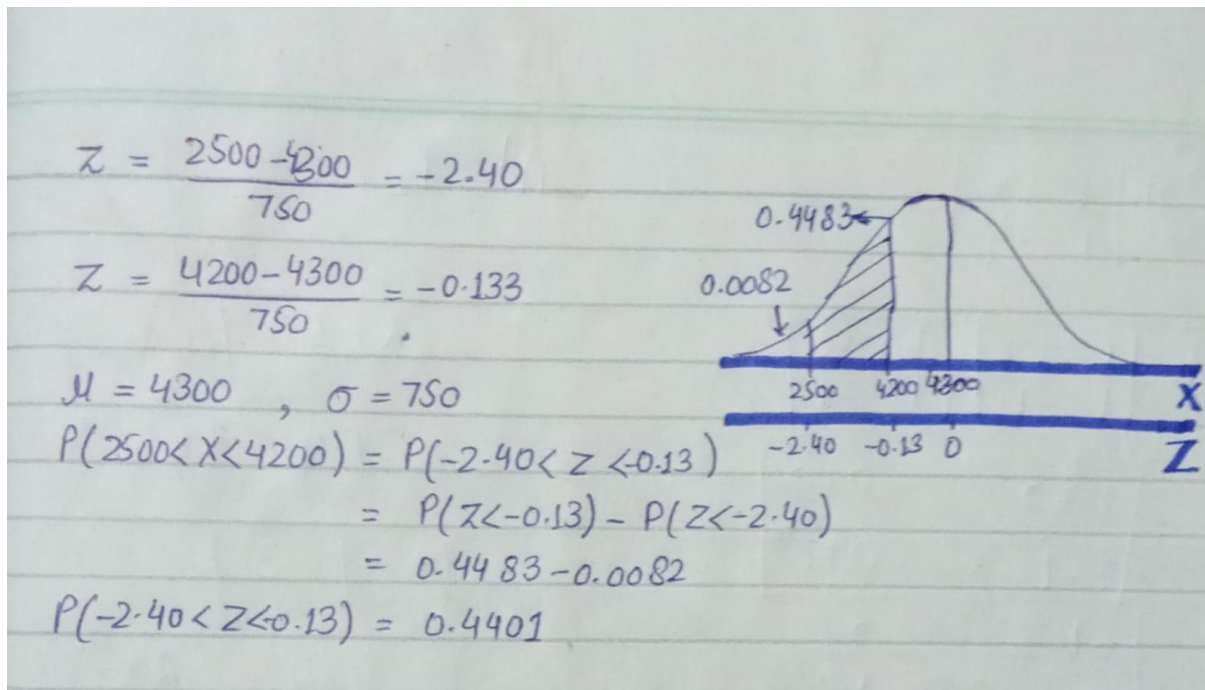 Z = 2500-4300/750 = -2.40
Z = 4200-4300/750 = -0.133
μ = 4300 , σ = 750
P(2500<X<4200) = P(-2.40<Z<-0.13)
= P(Z<-0.13) - P(Z<-2.40)
= 0.4483-0.0082
P(-2.40<Z<-0.13) = 0.4401
0.4483
0.0082
2500 4200 4300
X
-2.40 -0.13 0
Z